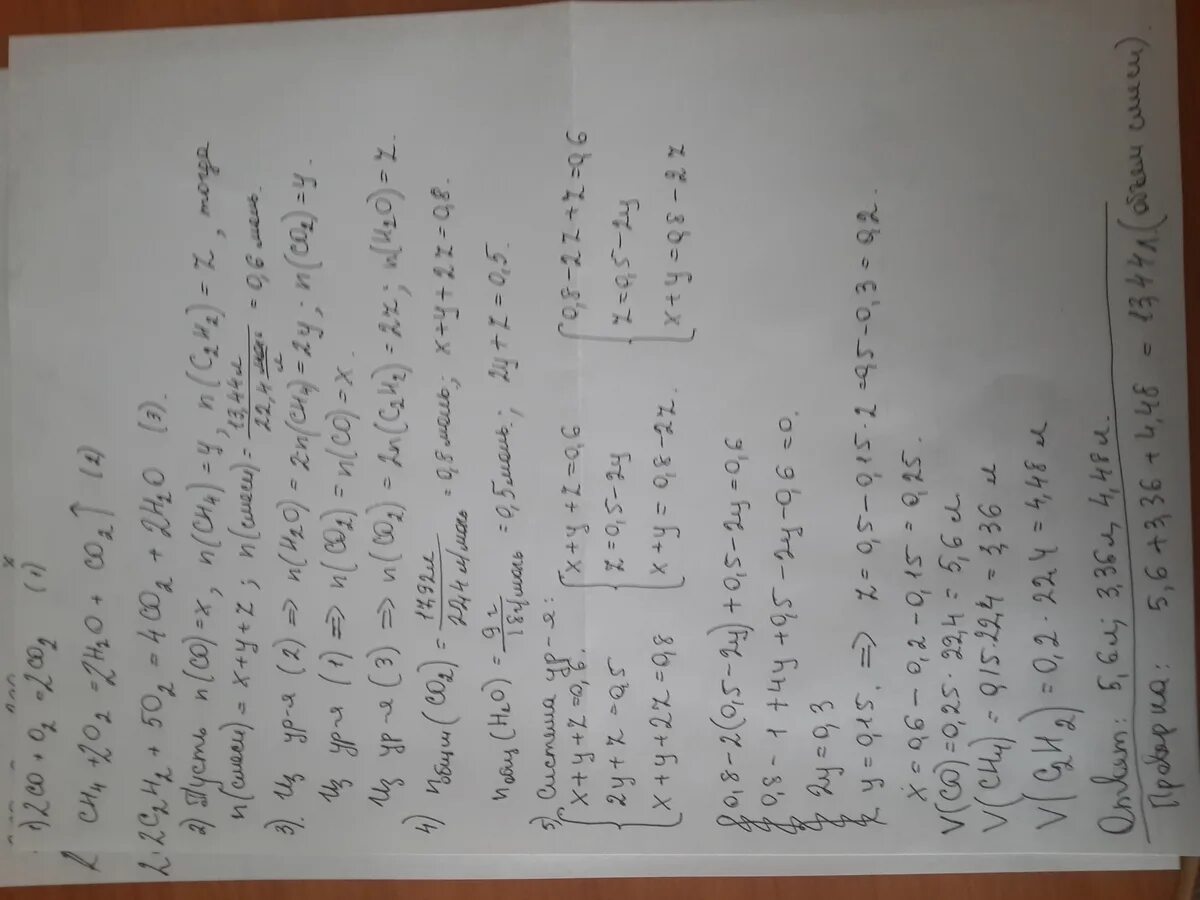 1) 2CO + O2 = 2CO2 (1)
CH4 + 2O2 = 2H2O + CO2↑ (2)
2. 2C2H2 + 5O2 = 4CO2 + 2H2O (3).
2) Пусть n(CO) = x, n(CH4) = y, n(C2H2) = z, тогда
n(смеси) = x+y+z; n(смеси) = 13,44л / 22,4 л/моль = 0,6 моль.
3). Из ур-я (2) => n(H2O) = 2·n(CH4) = 2y; n(CO2) = y.
Из ур-я (1) => n(CO2) = n(CO) = x.
Из ур-я (3) => n(CO2) = 2n(C2H2) = 2z; n(H2O) = z.
4) nобщ(CO2) = 17,92л / 22,4 л/моль = 0,8 моль; x+y+2z = 0,8.
nобщ(H2O) = 9г / 18г/моль = 0,5 моль; 2y+z = 0,5.
5) Система ур-я:
{x+y+z=0,6. {x+y+z=0,6 {0,8-2z+z=0,6
2y+z=0,5 z=0,5-2y z=0,5-2y
x+y+2z=0,8 x+y=0,8-2z. x+y=0,8-2z
0,8-2(0,5-2y)+0,5-2y=0,6
0,8-1+4y+0,5-2y-0,6=0.
2y=0,3
y=0,15. => z=0,5-0,15·2=0,5-0,3=0,2.
x=0,6-0,2-0,15=0,25.
V(CO)=0,25·22,4=5,6л.
V(CH4)=0,15·22,4=3,36 л
V(C2H2)=0,2·22,4=4,48 л
Ответ: 5,6л; 3,36л, 4,48л.
Проверка: 5,6+3,36+4,48 = 13,44л (объем смеси).